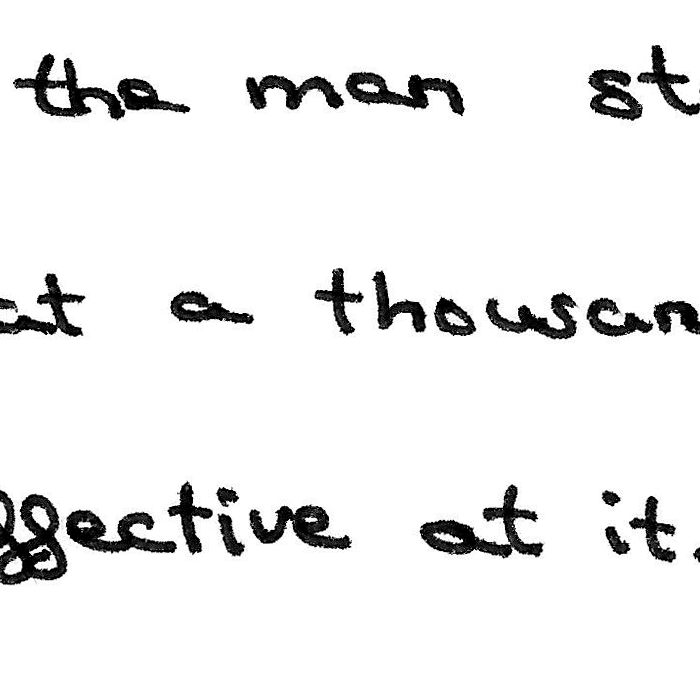 the man st
at a thousan
ffective at it.